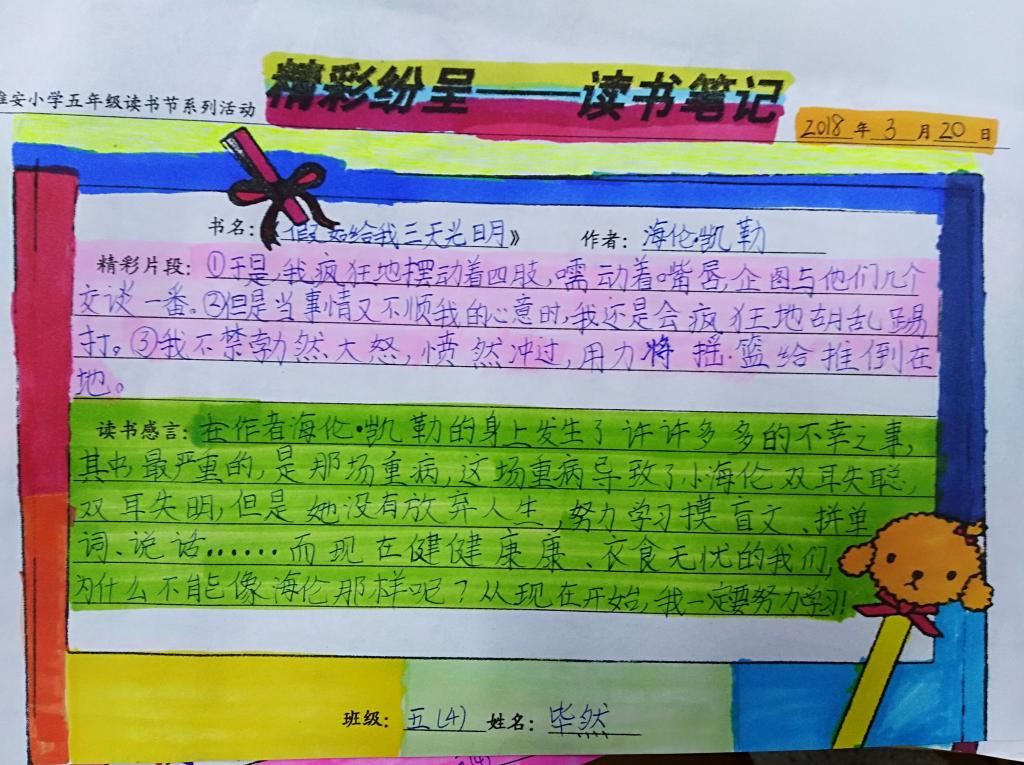 精彩纷呈——读书笔记
淮安小学五年级读书节系列活动
2018年3月20日
书名：《假如给我三天光明》 作者：海伦·凯勒
精彩片段：①于是，我疯狂地摆动着四肢，嚅动着嘴唇，企图与他们几个
交谈一番。②但是当事情又不顺我的心意时，我还是会疯狂地胡乱踢
打。③我不禁勃然大怒，愤然冲过，用力将摇篮给推倒在
地。
读书感言：在作者海伦·凯勒的身上发生了许许多多的不幸之事，
其中最严重的，是那场重病，这场重病导致了小海伦双耳失聪，
双耳失明，但是她没有放弃人生，努力学习摸盲文、拼单
词、说话……而现在健健康康、衣食无忧的我们，
为什么不能像海伦那样呢？从现在开始，我一定要努力学习！
班级：五(4) 姓名：毕然